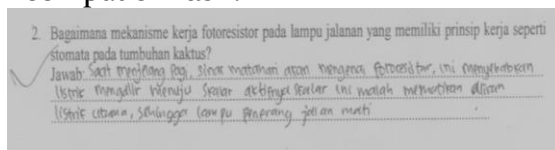 2. Bagaimana mekanisme kerja fotoresistor pada lampu jalanan yang memiliki prinsip kerja seperti
stomata pada tumbuhan kaktus?
Jawab: Saat menjelang Pagi, sinar matahari akan mengenai fotoresistor, ini menyebabkan
listrik mengalir menuju skalar aktifnya skalar ini malah mematikan aliran
listrik utama, sehingga lampu penerang jalan mati